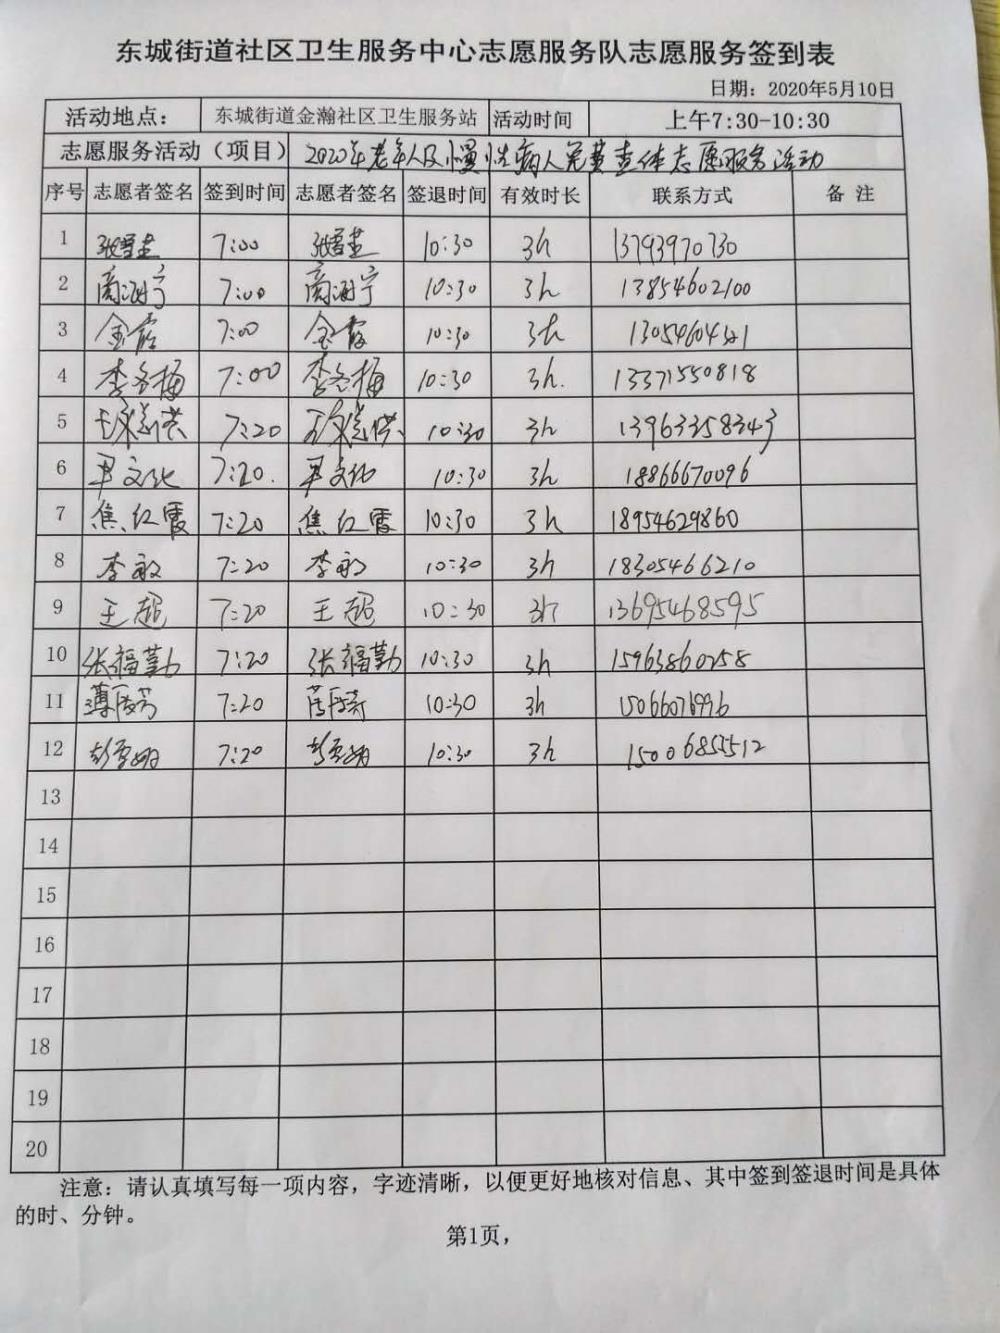 东城街道社区卫生服务中心志愿服务队志愿服务签到表
日期：2020年5月10日
活动地点： 东城街道金瀚社区卫生服务站 活动时间 上午7:30-10:30
志愿服务活动（项目） 2020年老年人及慢性病人免费查体志愿服务活动
序号 志愿者签名 签到时间 志愿者签名 签退时间 有效时长 联系方式 备 注
1 7:00 10:30 3h 13793970730
2 7:00 10:30 3h 13854602100
3 金霞 7:00 金霞 10:30 3h
4 李冬梅 7:00 李冬梅 10:30 3h. 13371550818
5 7:20 10:30 3h 13963358343
6 尹文化 7:20. 尹文化 10:30 3h 18866670096
7 焦红霞 7:20 焦红霞 10:30 3h 18954629860
8 李敏 7:20 李敏 10:30 3h 18305466210
9 王超 7:20 王超 10:30 3h 13695468595
10 张福勤 7:20 张福勤 10:30 3h 15963860258
11 7:20 10:30 3h
12 7:20 10:30 3h 15006855512
13
14
15
16
17
18
19
20
注意：请认真填写每一项内容，字迹清晰，以便更好地核对信息、其中签到签退时间是具体
的时、分钟。
第1页，